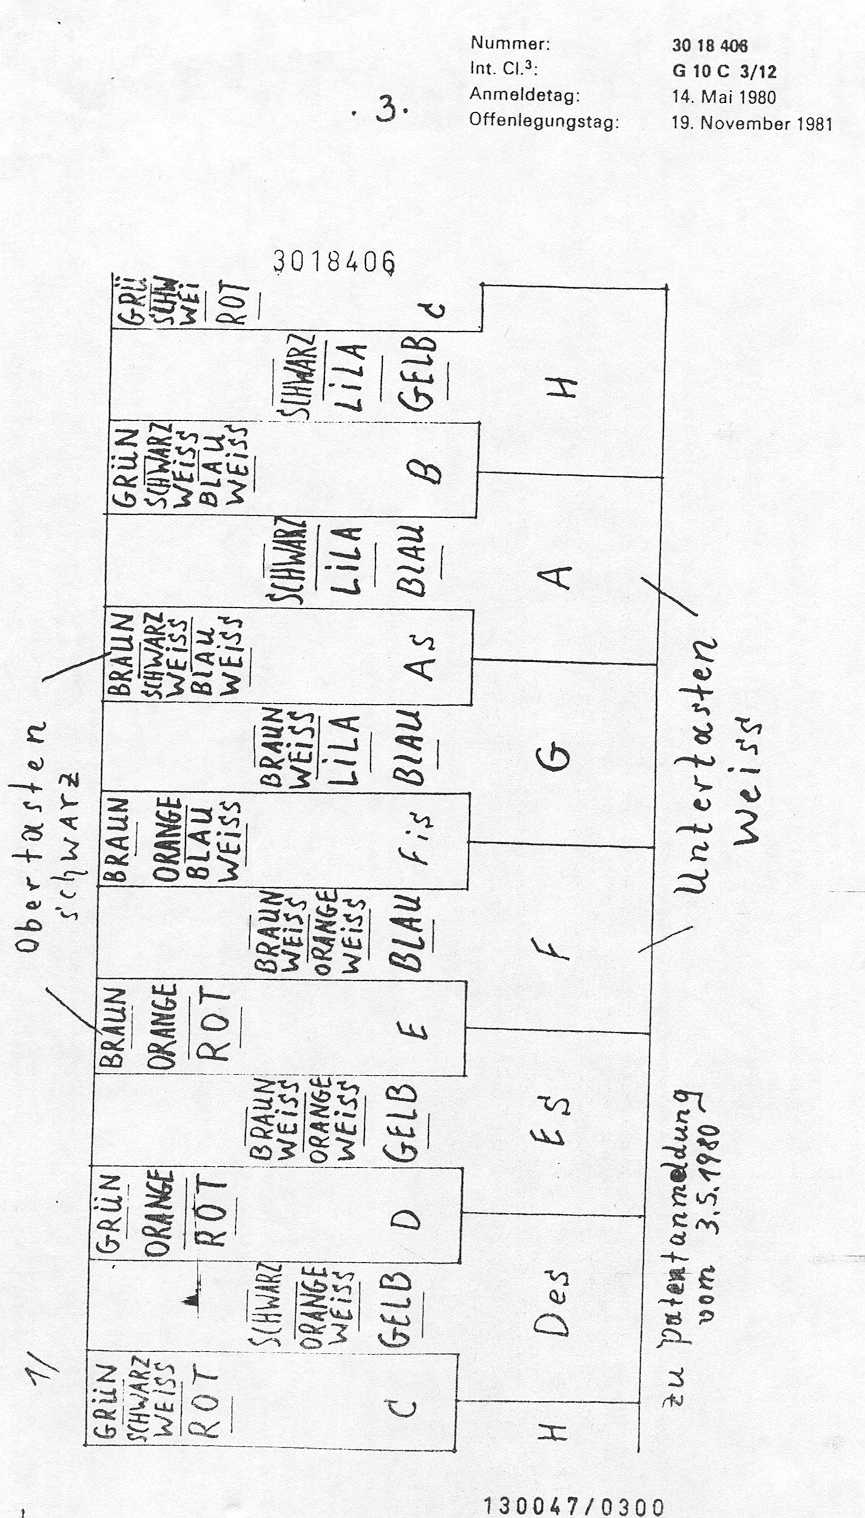 Nummer: 30 18 406
Int. Cl.³: G 10 C 3/12
Anmeldetag: 14. Mai 1980
Offenlegungstag: 19. November 1981
. 3.
3018406
1/
Obertasten
schwarz
GRÜN
SCHWARZ
WEISS
ROT
C
H
SCHWARZ
ORANGE
WEISS
GELB
Des
GRÜN
ORANGE
ROT
D
BRAUN
WEISS
ORANGE
WEISS
GELB
ES
BRAUN
ORANGE
ROT
E
BRAUN
WEISS
ORANGE
WEISS
BLAU
F
BRAUN
ORANGE
BLAU
WEISS
Fis
BRAUN
WEISS
LiLA
BLAU
G
BRAUN
SCHWARZ
WEISS
BLAU
WEISS
As
SCHWARZ
LiLA
BLAU
A
GRÜN
SCHWARZ
WEISS
BLAU
WEISS
B
SCHWARZ
LiLA
GELB
H
GRÜ
SCHW
WEI
ROT
c
Untertasten
weiss
zu patentanmeldung
vom 3.5.1980
130047/0300